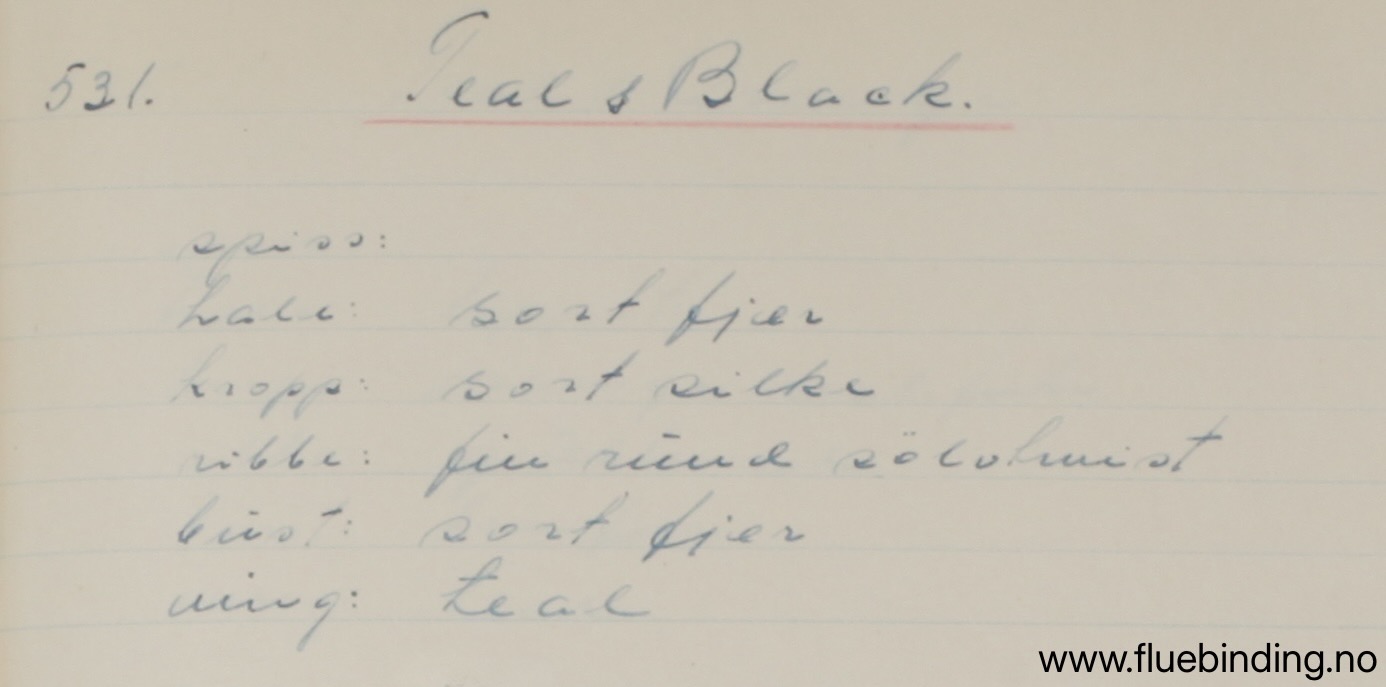 531. Teal & Black.
spiss:
hale: sort fjær
kropp: sort silke
ribbe: fin rund sölvtwist
bust: sort fjær
ving: teal
www.fluebinding.no